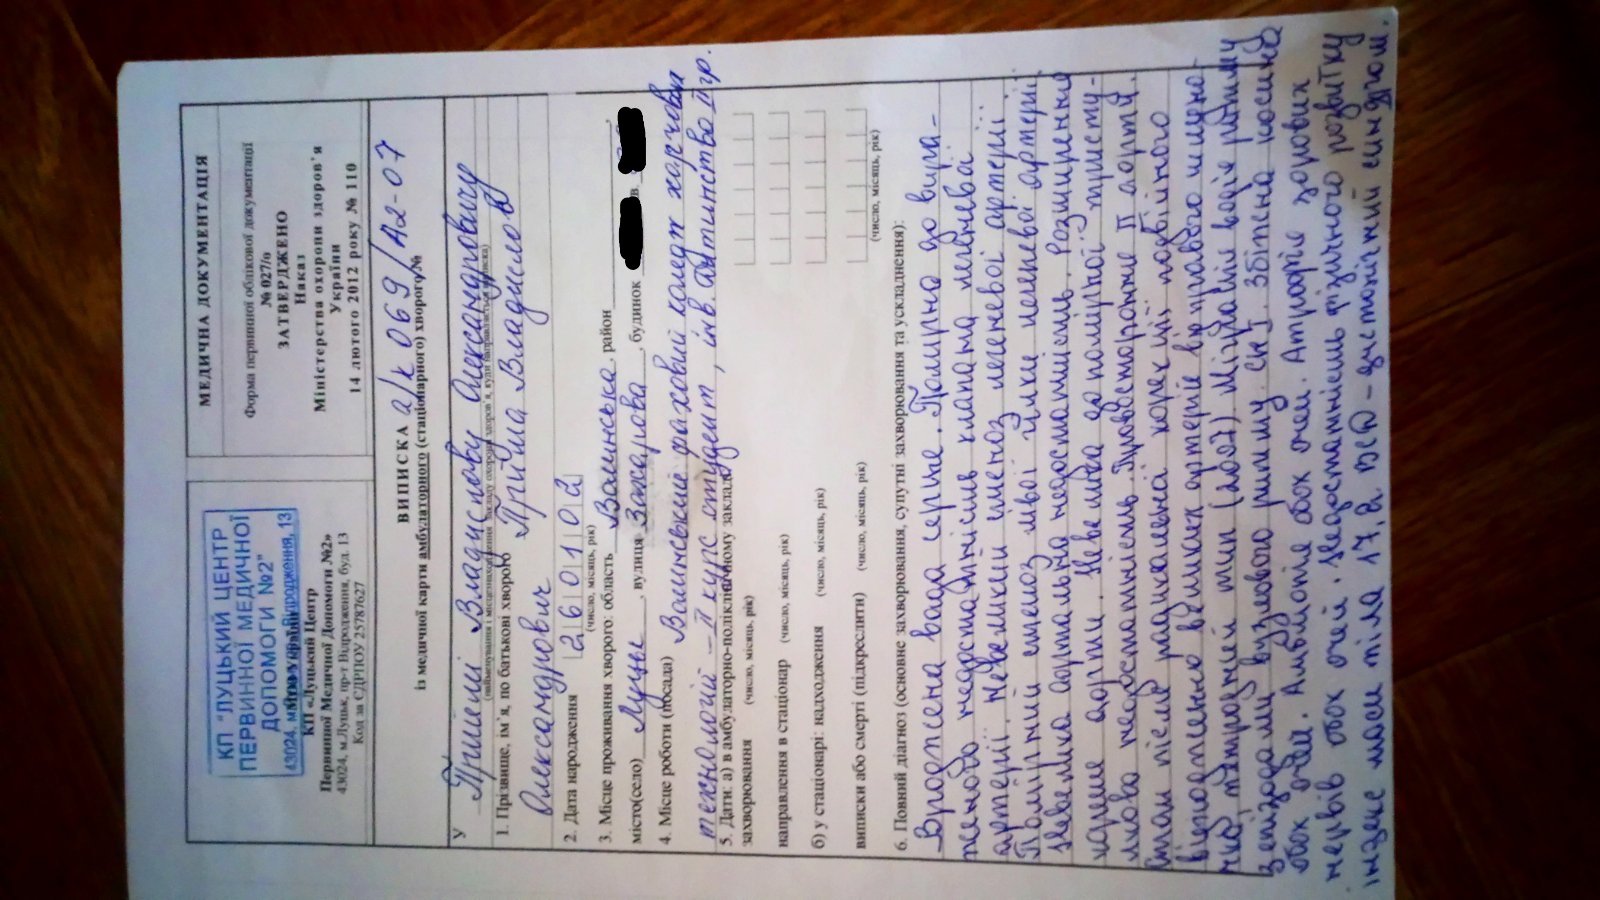 КП "ЛУЦЬКИЙ ЦЕНТР
ПЕРВИННОЇ МЕДИЧНОЇ
ДОПОМОГИ №2"
43024, м. Луцьк, пр. Відродження, 13
КП «Луцький Центр
Первинної Медичної Допомоги №2»
43024, м.Луцьк, пр-т Відродження, буд. 13
Код за ЄДРПОУ 25787627
МЕДИЧНА ДОКУМЕНТАЦІЯ
Форма первинної облікової документації
№ 027/о
ЗАТВЕРДЖЕНО
Наказ
Міністерства охорони здоров'я
України
14 лютого 2012 року № 110
ВИПИСКА а/к 069/А2-07
із медичної карти амбулаторного (стаціонарного) хворого №
У Владиславу Олександровичу
(найменування і місцезнаходження закладу охорони здоров'я, куди направляється виписка)
1. Прізвище, ім'я, по батькові хворого Владислав
Олександрович
2. Дата народження 2 6 0 1 0 2
(число, місяць, рік)
3. Місце проживання хворого: область Волинська, район
місто(село) Луцьк, вулиця Захарова, будинок кв.
4. Місце роботи (посада) Волинський фаховий харчових
технологій – ІІ курс студент, інв. дитинства ІІ гр.
5. Дати: а) в амбулаторно-поліклінічному закладі:
захворювання (число, місяць, рік)
направлення в стаціонар (число, місяць, рік)
б) у стаціонарі: надходження (число, місяць, рік)
виписки або смерті (підкреслити) (число, місяць, рік)
(число, місяць, рік)
6. Повний діагноз (основне захворювання, супутні захворювання та ускладнення):
Вроджена вада серця. Помірна до вира-
женої недостатність клапана легеневої
артерії. Невеликий стеноз легеневої артерії.
Помірний стеноз лівої гілки легеневої артерії.
Невелика аортальна недостатність. Розширення
аорти. Невелика до помірної тристу-
лкова недостатність. Правостороння дуга аорти.
Стан після радикальної корекції подвійного
відходження великих артерій від правого шлуно-
чка, (2007). Міграція водія ритму
з епізодами вузлового ритму. СН I. Збіжна косина
обох очей. Амбліопія обох очей. Атрофія зорових
нервів обох очей. Недостатність фізичного розвитку
індекс маси тіла 17, ВСД - астенічний синдром.